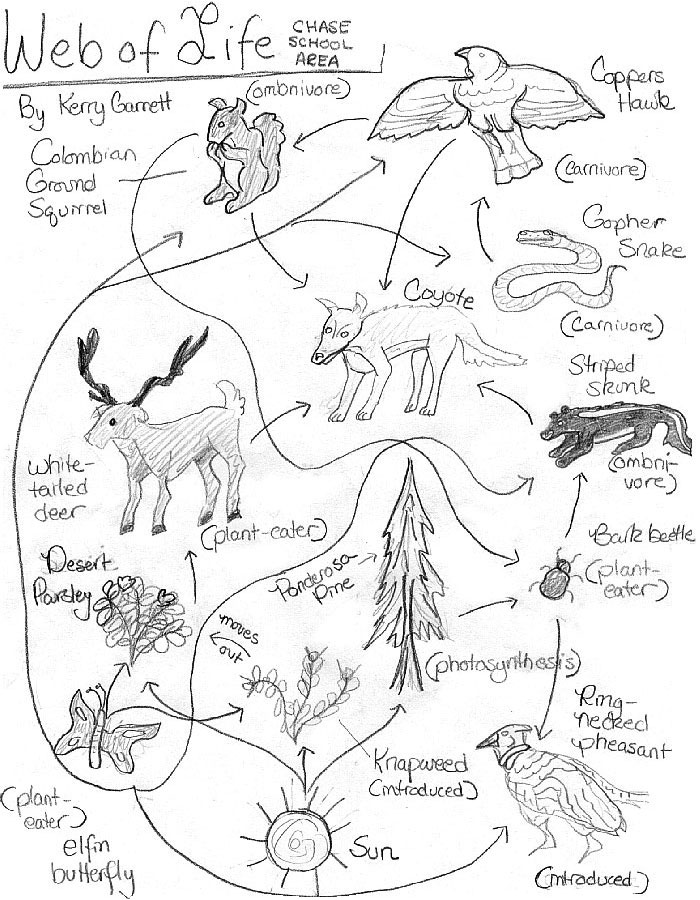 Web of Life
CHASE
SCHOOL
AREA
By Kerry Garrett
(ombnivore)
Coppers
Hawk
(Carnivore)
Colombian
Ground
Squirrel
Gopher
Snake
(Carnivore)
Coyote
Striped
skunk
(ombni-
vore)
White-
tailed
deer
(plant-eater)
Bark beetle
(plant-
eater)
Desert
Parsley
Ponderosa
Pine
(photosynthesis)
moves
out
Ring-
necked
pheasant
(introduced)
Knapweed
(introduced)
Sun
(plant-
eater)
elfin
butterfly